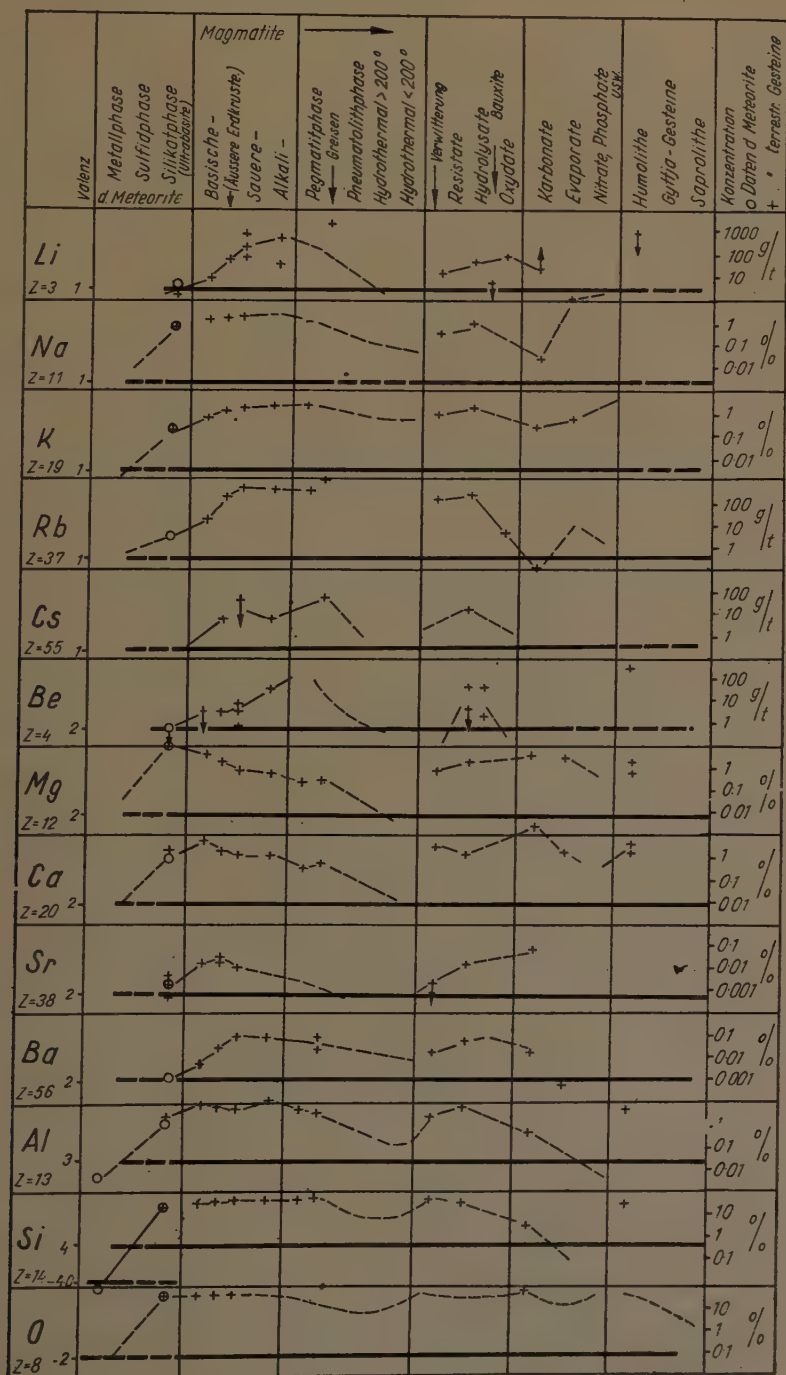 Magmatite
Valenz
Metallphase
Sulfidphase
Silikatphase
(Ultrabasite)
d. Meteorite
Basische-
(Äussere Erdkruste)
Sauere-
Alkali-
Pegmatitphase
Greisen
Pneumatolithphase
Hydrothermal > 200°
Hydrothermal < 200°
Verwitterung
Resistate
Hydrolysate
Bauxite
Oxydate
Karbonate
Evaporate
Nitrate, Phosphate
usw.
Humolithe
Gyttja-Gesteine
Saprolithe
Konzentration
o Daten d. Meteorite
+ " terrestr. Gesteine
Li
Z=3 1
1000
100
10
g/t
Na
Z=11 1
1
0·1
0·01
%
K
Z=19 1
1
0·1
0·01
%
Rb
Z=37 1
100
10
1
g/t
Cs
Z=55 1
100
10
1
g/t
Be
Z=4 2
100
10
1
g/t
Mg
Z=12 2
1
0·1
0·01
%
Ca
Z=20 2
1
0·1
0·01
%
Sr
Z=38 2
0·1
0·01
0·001
%
Ba
Z=56 2
0·1
0·01
0·001
%
Al
Z=13 3
1
0·1
0·01
%
Si
4
Z=14 -4,0
10
1
0·1
%
O
Z=8 -2
10
1
0·1
%